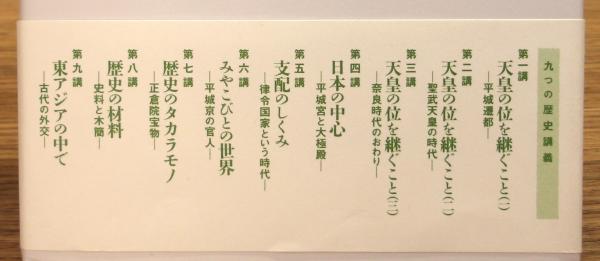 九つの歴史講義
第一講
天皇の位を継ぐこと(一)
―平城遷都―
第二講
天皇の位を継ぐこと(二)
―聖武天皇の時代―
第三講
天皇の位を継ぐこと(三)
―奈良時代のおわり―
第四講
日本の中心
―平城宮と大極殿―
第五講
支配のしくみ
―律令国家という時代―
第六講
みやこびとの世界
―平城京の官人―
第七講
歴史のタカラモノ
―正倉院宝物―
第八講
歴史の材料
―史料と木簡―
第九講
東アジアの中で
―古代の外交―